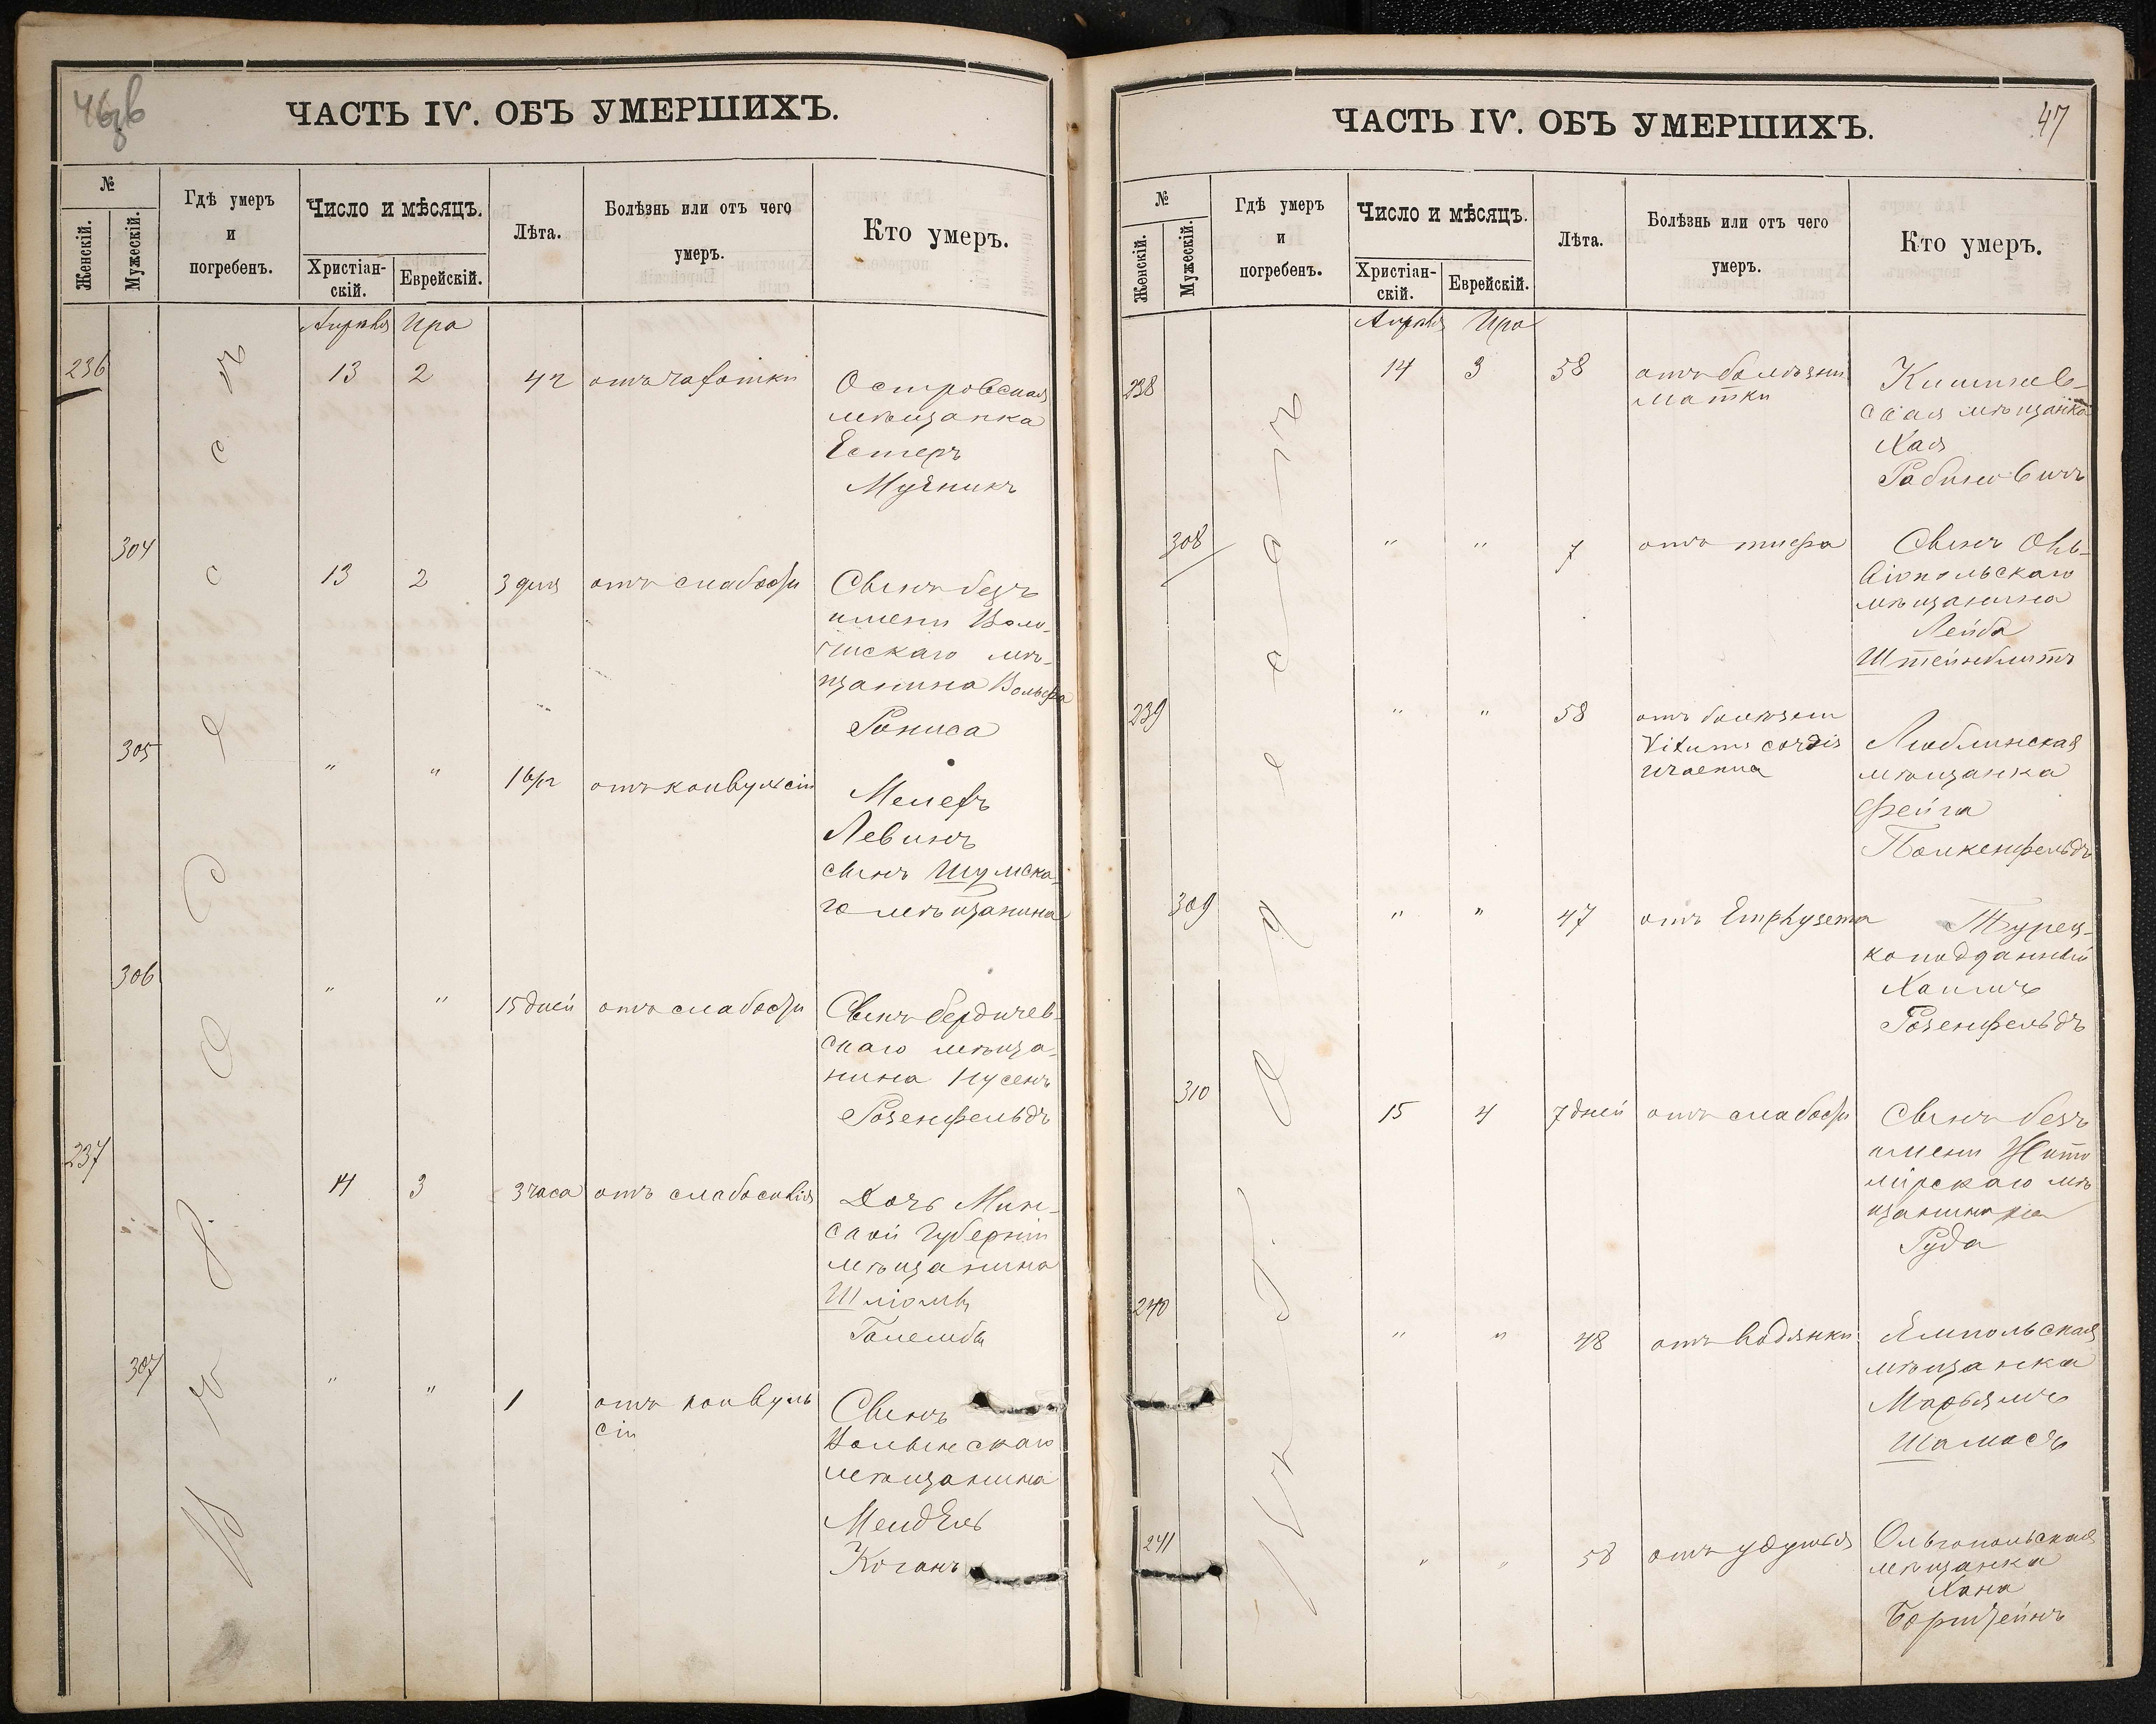 ЧАСТЬ IV. ОБЪ УМЕРШИХЪ.
№
Женскій.
Мужескій.
Гдѣ умеръ
и
погребенъ.
Число и мѣсяцъ.
Христіан-
скій.
Еврейскій.
Лѣта.
Болѣзнь или отъ чего
умеръ.
Кто умеръ.
Апрѣля Ира
236
13
2
42
отъ чахотки
Островская
мѣщанка
Естеръ
Мучникъ
304
13
2
3 дня
отъ слабости
Сынъ безъ
имени
мѣ-
щанина Вольфа
305
"
"
отъ конвульсіи
Левинъ
сынъ Шумска-
го мѣщанина
306
"
"
15 дней
отъ слабости
Сынъ бердичев-
скаго мѣща-
нина Нусенъ
Розенфельдъ
237
14
3
3 часа
отъ слабосилія
Дочь Мин-
ской губерніи
мѣщанина
Шліомы
307
"
"
1
отъ конвуль
сіи
Сынъ
Волынскаго
мѣщанина
Мендель
Коганъ
В ъ О д е с с ѣ
ЧАСТЬ IV. ОБЪ УМЕРШИХЪ.
47
№
Женскій.
Мужескій.
Гдѣ умеръ
и
погребенъ.
Число и мѣсяцъ.
Христіан-
скій.
Еврейскій.
Лѣта.
Болѣзнь или отъ чего
умеръ.
Кто умеръ.
Апрѣля Ира
238
14
3
58
отъ болѣзни
матки
Кишинев-
ская мѣщанка
Хая
Рабиновичъ
308
"
"
7
отъ тифа
Сынъ Оль-
віопольскаго
мѣщанина
Лейба
Штейнблитъ
239
"
"
58
отъ болѣзни
Vitums cordis
Люблинская
мѣщанка
Фейга
309
"
"
47
отъ Emphysema
Турец-
коподданный
Хаимъ
Розенфельдъ
310
15
4
7 дней
отъ слабости
Сынъ безъ
имени Жито
мірскаго мѣ
щанина
Руда
240
"
"
48
отъ водянки
Ямпольская
мѣщанка
Марьямъ
Шамасъ
241
"
"
58
отъ удушья
Ольгопольская
мѣщанка
Хана
Борштейнъ